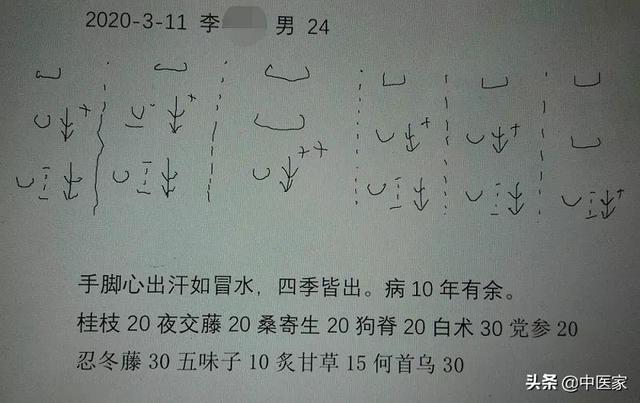 2020-3-11 李 男 24
手脚心出汗如冒水，四季皆出。病 10 年有余。
桂枝 20 夜交藤 20 桑寄生 20 狗脊 20 白术 30 党参 20
忍冬藤 30 五味子 10 炙甘草 15 何首乌 30
头条 @中医家